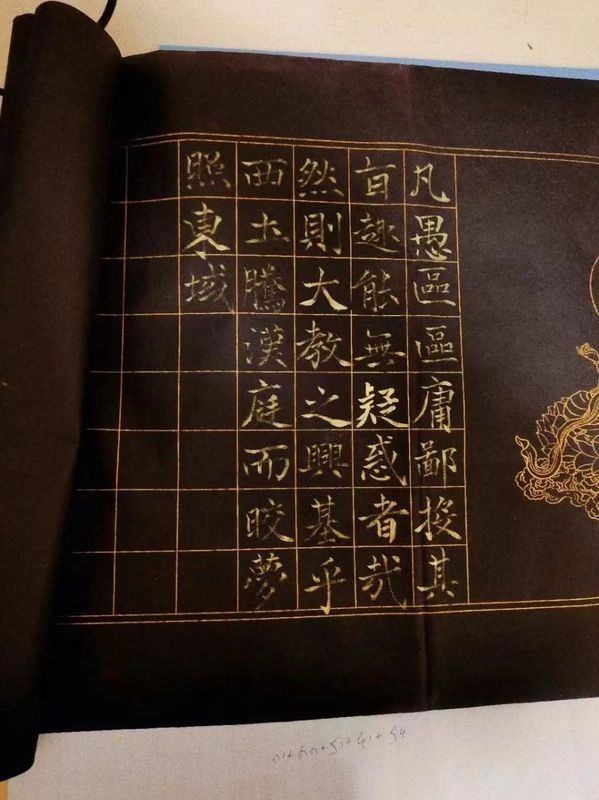 凡愚區區庸鄙投其
旨趣能無疑惑者哉
然則大教之興基乎
西土騰漢庭而皎夢
照東域